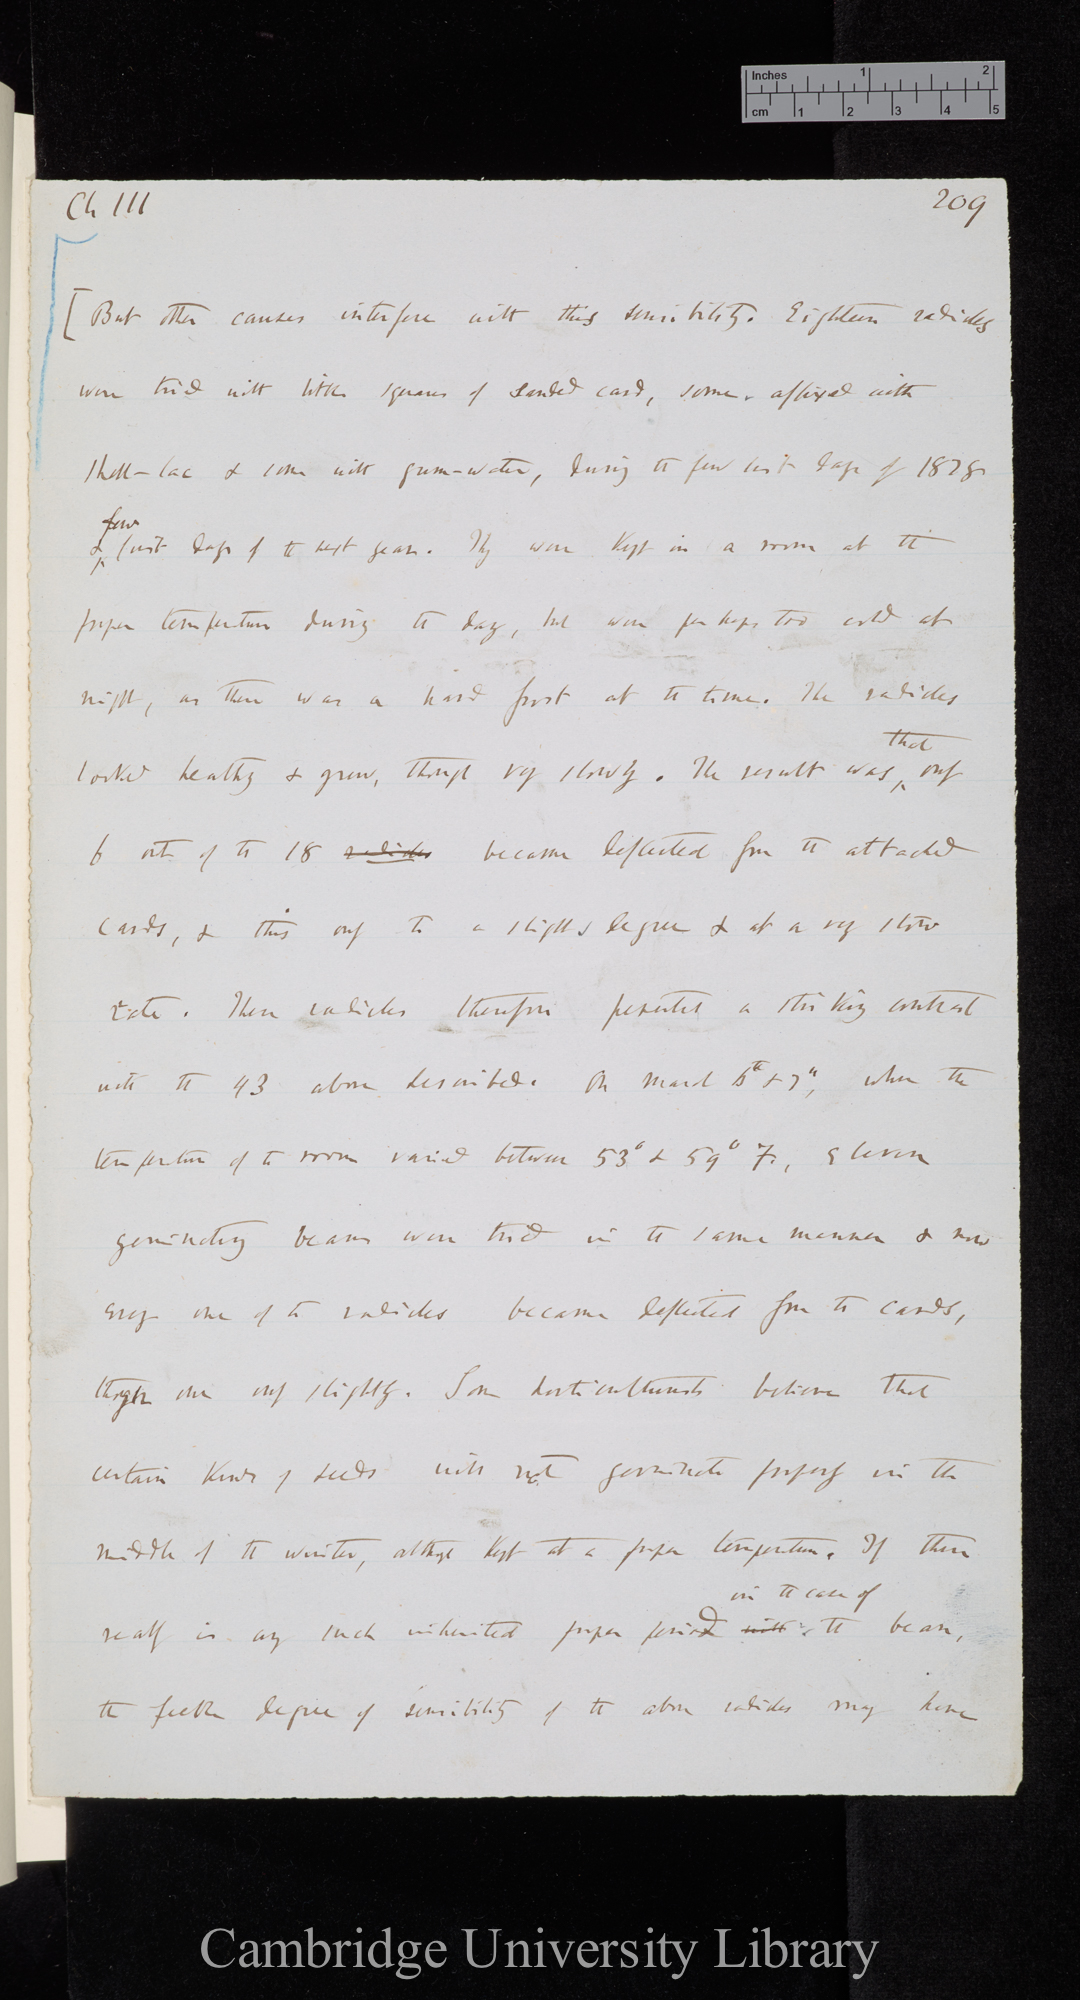 Inches 1 2
cm 1 2 3 4 5
Ch III 209
[But other causes interfere with this sensibility. Eighteen radicles
were tried with little squares of sanded card, some affixed with
shell-lac & some with gum-water, during the few last days of 1878
few
& first days of the next year. They were kept in a room at the
proper temperature during the day, but were perhaps too cold at
night, as there was a hard frost at the time. The radicles
that
looked healthy & grew, though very slowly. The result was, only
6 out of the 18 radicles became deflected from the attached
cards, & this only to a slight degree & at a very slow
rate. These radicles therefore presented a striking contrast
with the 43 above described. On March 6th & 7th, when the
temperature of the room varied between 53° & 59° F., eleven
germinating beans were tried in the same manner & now
every one of the radicles became deflected from the cards,
though one only slightly. Some horticulturists believe that
certain kinds of seeds will not germinate properly in the
middle of the winter, although kept at a proper temperature. If there
in the case of
really is any such inherited proper period with the bean,
the feeble degree of sensibility of the above radicles may have
Cambridge University Library